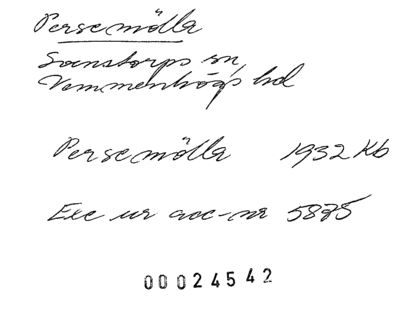 Persemölla
Svenstorps sn,
Vemmenhögs hd
Persemölla 1932 Kb
Exc ur acc-nr 5875
00024542